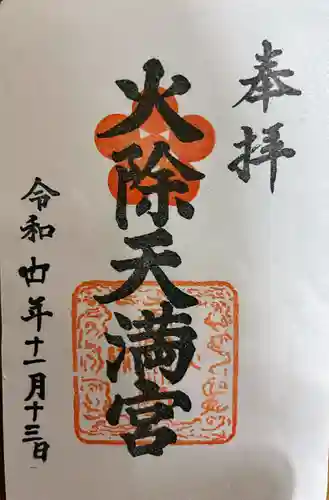 奉拝
火除天満宮
令和四年十一月十三日